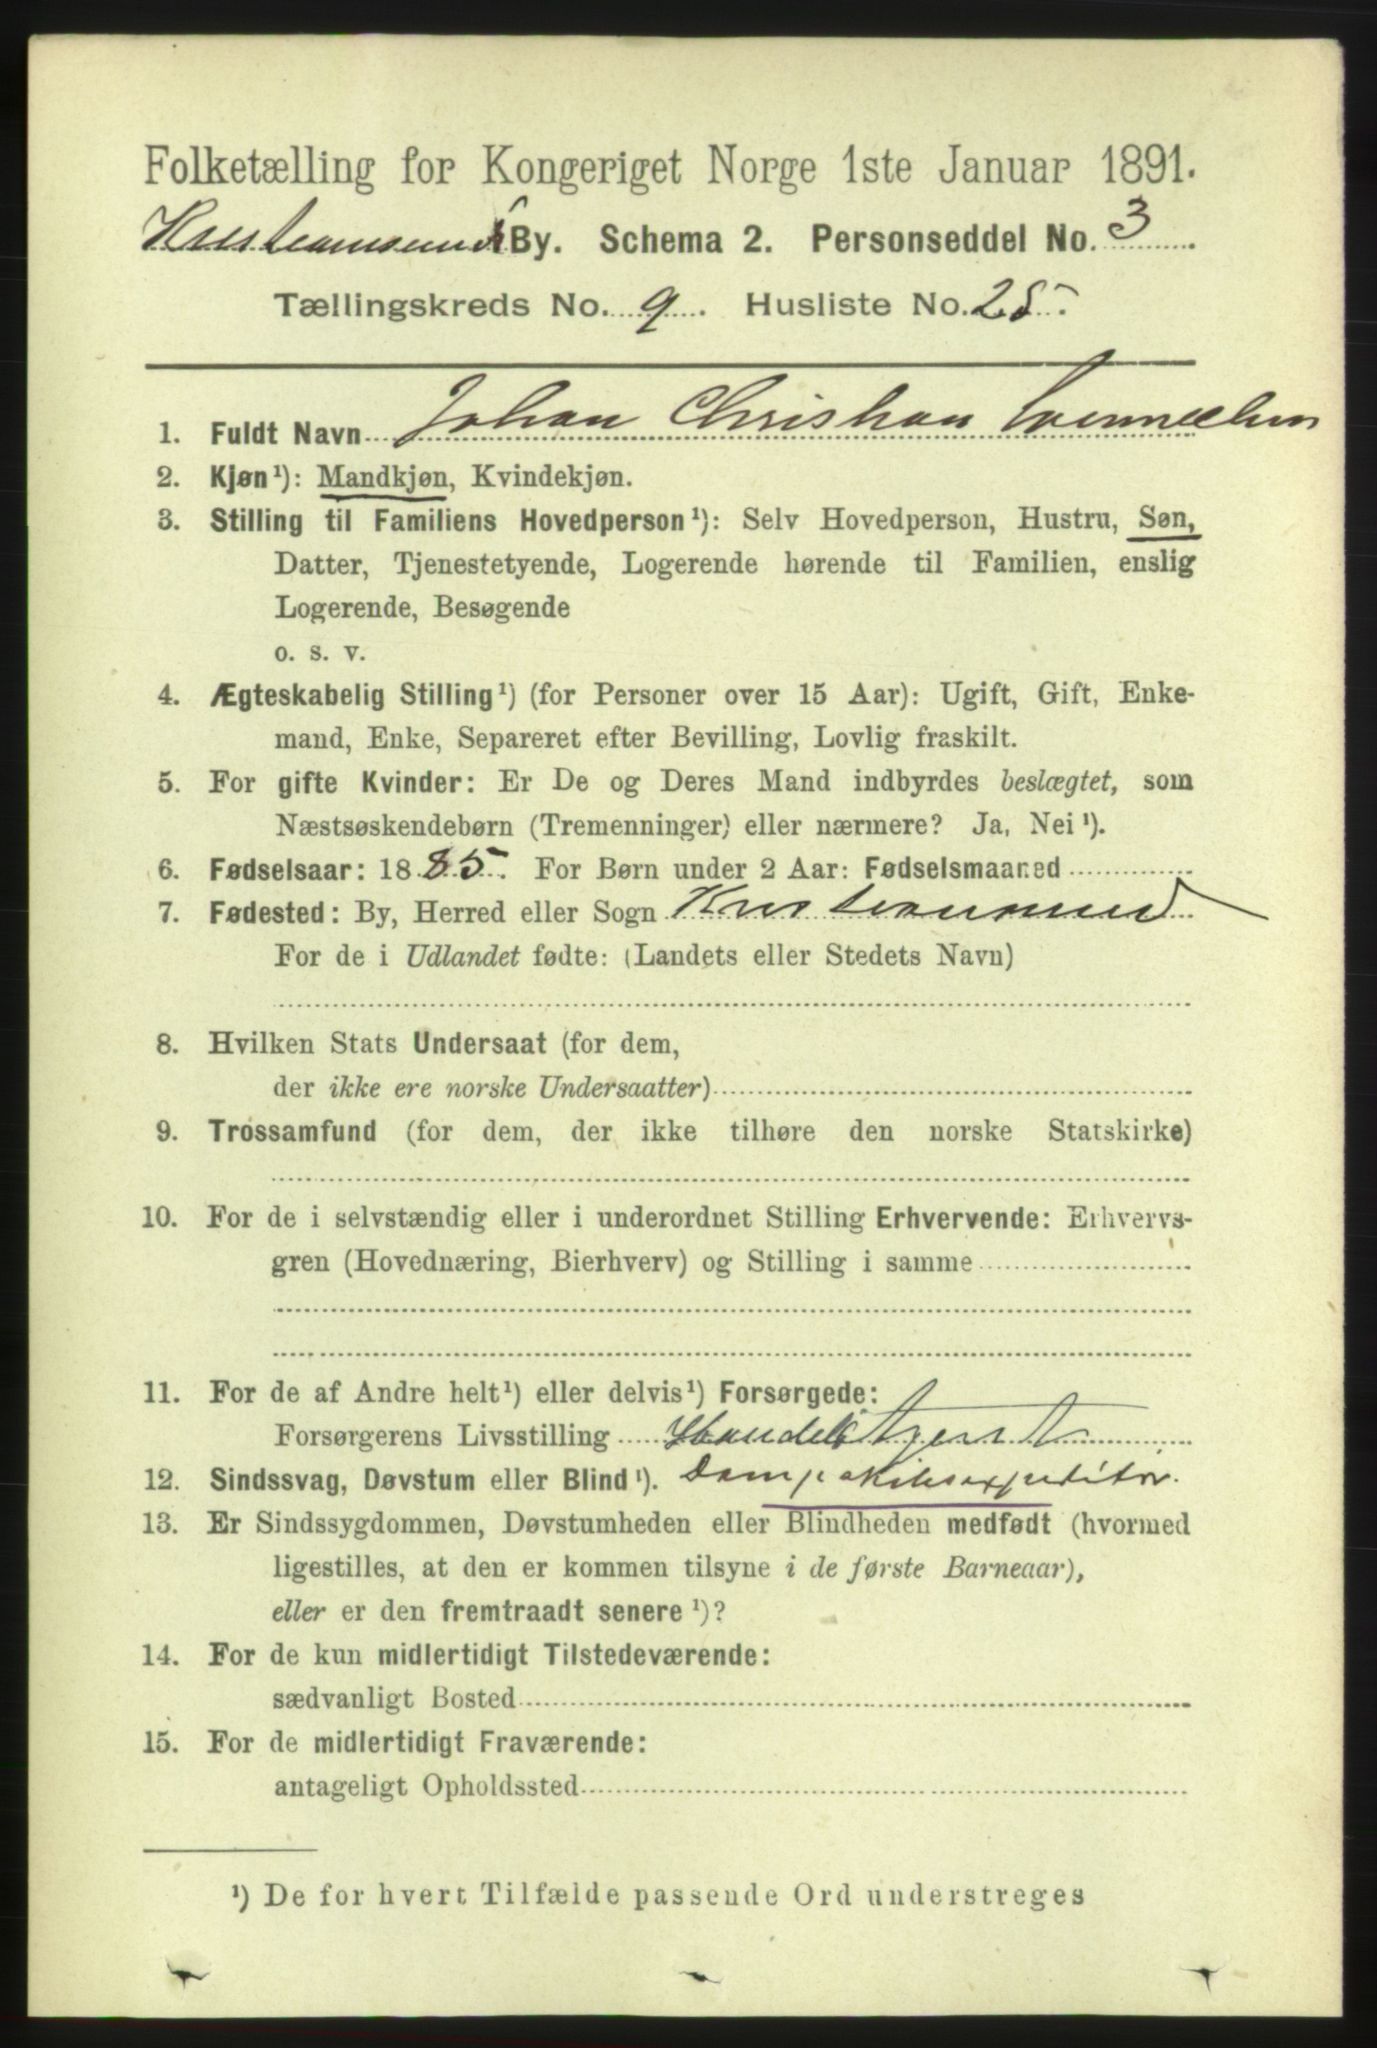 Folketælling for Kongeriget Norge 1ste Januar 1891.
Kristiansund By. Schema 2. Personseddel No. 3
Tællingskreds No. 9. Husliste No. 25.
1. Fuldt Navn Johan Christian
2. Kjøn¹): Mandkjøn, Kvindekjøn.
3. Stilling til Familiens Hovedperson¹): Selv Hovedperson, Hustru, Søn,
Datter, Tjenestetyende, Logerende hørende til Familien, enslig
Logerende, Besøgende
o. s. v.
4. Ægteskabelig Stilling¹) (for Personer over 15 Aar): Ugift, Gift, Enke-
mand, Enke, Separeret efter Bevilling, Lovlig fraskilt.
5. For gifte Kvinder: Er De og Deres Mand indbyrdes beslægtet, som
Næstsøskendebørn (Tremenninger) eller nærmere? Ja, Nei¹).
6. Fødselsaar: 1885. For Børn under 2 Aar: Fødselsmaaned
7. Fødested: By, Herred eller Sogn Kristiansund
For de i Udlandet fødte: (Landets eller Stedets Navn)
8. Hvilken Stats Undersaat (for dem,
der ikke ere norske Undersaatter)
9. Trossamfund (for dem, der ikke tilhøre den norske Statskirke)
10. For de i selvstændig eller i underordnet Stilling Erhvervende: Erhvervs-
gren (Hovednæring, Bierhverv) og Stilling i samme
11. For de af Andre helt¹) eller delvis¹) Forsørgede:
Forsørgerens Livsstilling Handels Agent
12. Sindssvag, Døvstum eller Blind¹). Dampskibsexpeditør.
13. Er Sindssygdommen, Døvstumheden eller Blindheden medfødt (hvormed
ligestilles, at den er kommen tilsyne i de første Barneaar),
eller er den fremtraadt senere¹)?
14. For de kun midlertidigt Tilstedeværende:
sædvanligt Bosted
15. For de midlertidigt Fraværende:
antageligt Opholdssted
¹) De for hvert Tilfælde passende Ord understreges